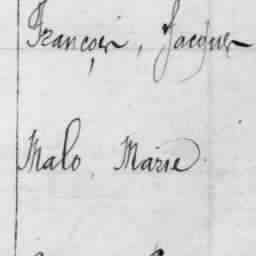 François, Jacques
Malo, Marie